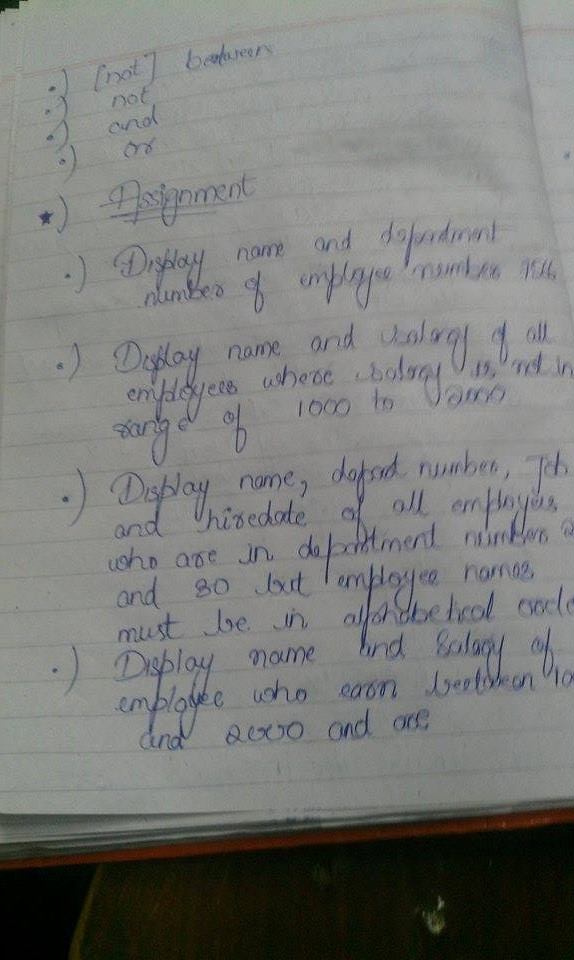 •) [not] between
•) not
•) and
•) or
★) Assignment
•) Display name and department
number of employee number
•) Display name and salary of all
employees where salary is not in
range of 1000 to 2000
•) Display name, depart number, Job
and hiredate of all employees
who are in department number
and 30 but employee names
must be in alphabetical
•) Display name and Salary of
employee who earn between
and 2000 and are